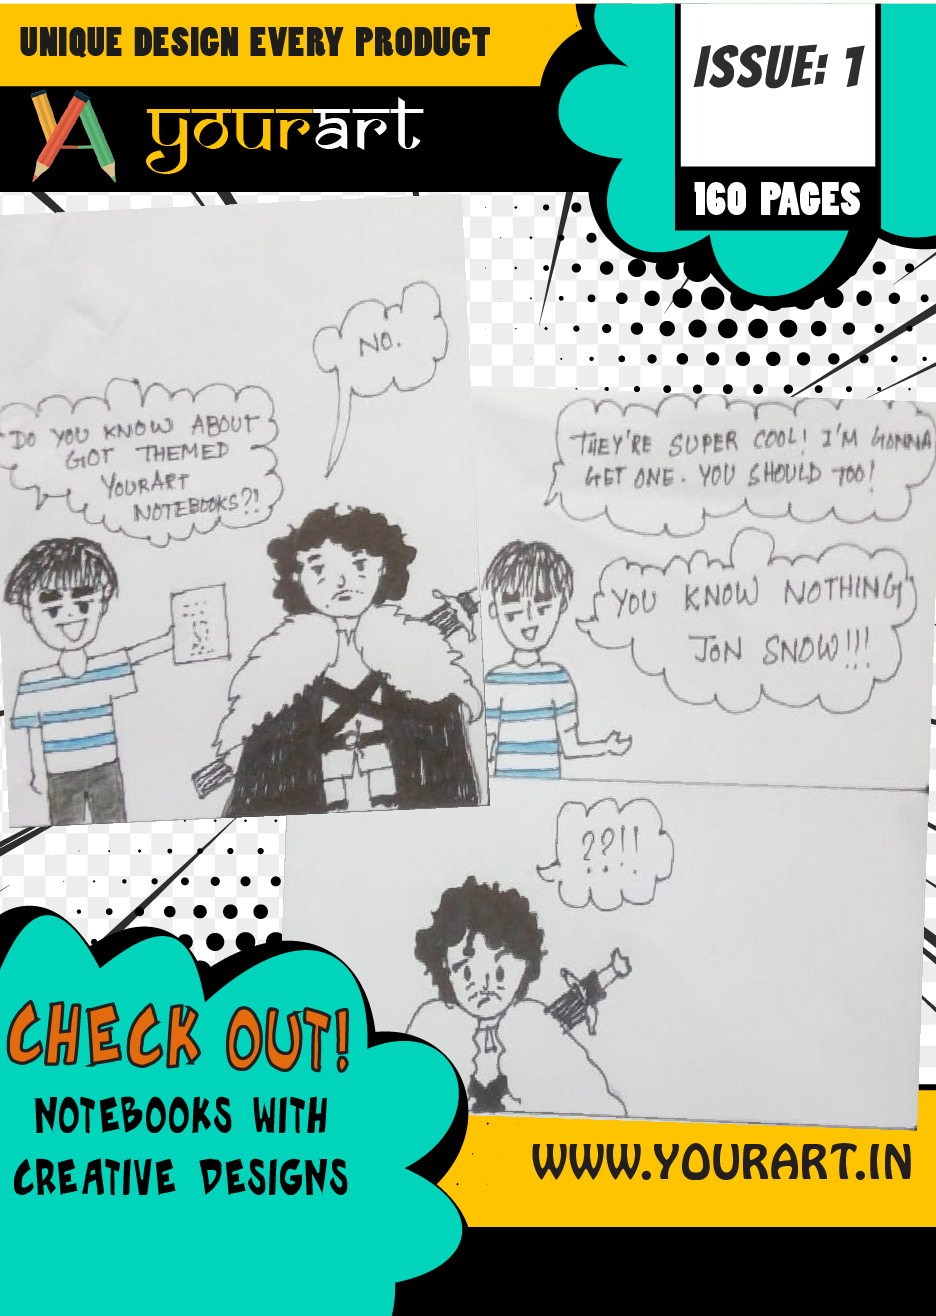 UNIQUE DESIGN EVERY PRODUCT
yourart
ISSUE: 1
160 PAGES
NO.
DO YOU KNOW ABOUT
GOT THEMED
YOURART
NOTEBOOKS?!
THEY'RE SUPER COOL! I'M GONNA
GET ONE. YOU SHOULD TOO!
YOU KNOW NOTHING
JON SNOW!!!
??!!
CHECK OUT!
NOTEBOOKS WITH
CREATIVE DESIGNS
WWW.YOURART.IN